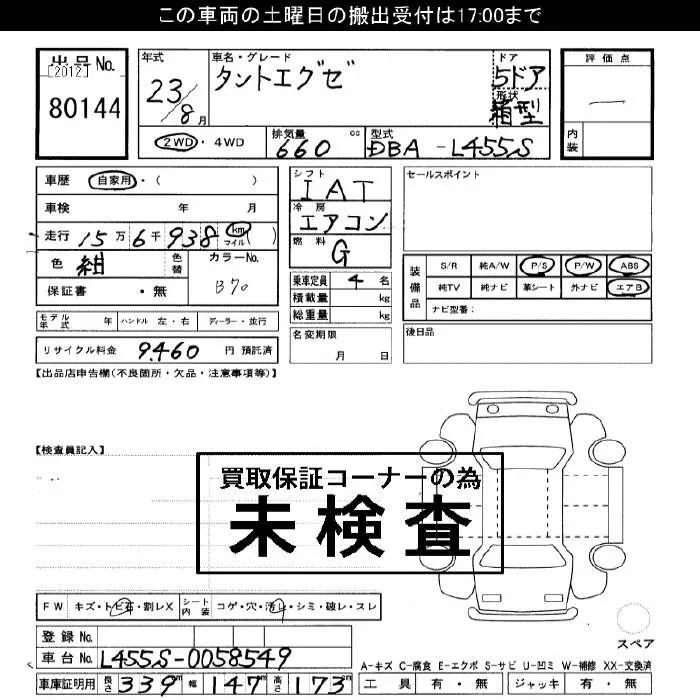 この車両の土曜日の搬出受付は17:00まで
出品No.
[2012]
80144
年式 23/8月
車名・グレード
タントエグゼ
ドア
5ドア
形状
箱型
評価点
—
内装
2WD・4WD
排気量 660 cc
型式 DBA-L455S
車歴 自家用・( )
車検 年 月
走行 15万6千938 km マイル ( )
色 紺 色替 カラーNo. B70
保証書 ・無
シフト
IAT
冷房
エアコン
燃料
G
乗車定員 4 名
積載量 kg
総重量 kg
名変期限
月 日
セールスポイント
装備品
S/R 純A/W P/S P/W ABS
純TV 純ナビ 革シート 外ナビ エアB
ナビ型番:
後日品
モデル年式 年 ハンドル 左・右 ディーラー・並行
リサイクル料金 9460 円 預託済
【出品店申告欄(不良箇所・欠品・注意事項等)】
【検査員記入】
買取保証コーナーの為
未検査
FW キズ・トビ石・割レX シート内装 コゲ・穴・汚レ・シミ・破レ・スレ
登録No.
車台No. L455S-0058549
車庫証明用 長さ 339 m 幅 147 m 高さ 173 m
スペア
A-キズ C-腐食 E-エクボ S-サビ U-凹ミ W-補修 XX-交換済
工具 有・無 ジャッキ 有・無